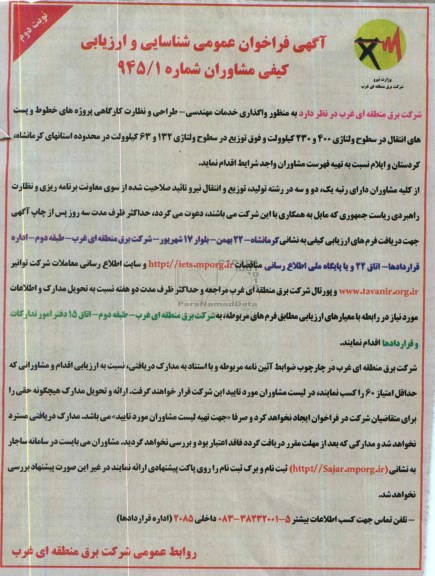 نوبت دوم
وزارت نیرو
شرکت برق منطقه ای غرب
آگهی فراخوان عمومی شناسایی و ارزیابی
کیفی مشاوران شماره ۹۴۵/۱
شرکت برق منطقه ای غرب در نظر دارد به منظور واگذاری خدمات مهندسی- طراحی و نظارت کارگاهی پروژه های خطوط و پست
های انتقال در سطوح ولتاژی ۴۰۰ و ۲۳۰ کیلوولت و فوق توزیع در سطوح ولتاژی ۱۳۲ و ۶۳ کیلوولت در محدوده استانهای کرمانشاه،
کردستان و ایلام نسبت به تهیه فهرست مشاوران واجد شرایط اقدام نماید.
از کلیه مشاوران دارای رتبه یک، دو و سه در رشته تولید، توزیع و انتقال نیرو تائید صلاحیت شده از سوی معاونت برنامه ریزی و نظارت
راهبردی ریاست جمهوری که مایل به همکاری با این شرکت می باشند، دعوت می گردد، حداکثر ظرف مدت سه روز پس از چاپ آگهی
جهت دریافت فرم های ارزیابی کیفی به نشانی کرمانشاه- ۲۲ بهمن- بلوار ۱۷ شهریور- شرکت برق منطقه ای غرب- طبقه دوم- اداره
قراردادها- اتاق ۲۲ و یا پایگاه ملی اطلاع رسانی مناقصات http://iets.mporg.ir و سایت اطلاع رسانی معاملات شرکت توانیر
www.tavanir.org.ir و پورتال شرکت برق منطقه ای غرب مراجعه و حداکثر ظرف مدت دو هفته نسبت به تحویل مدارک و اطلاعات
مورد نیاز در رابطه با معیارهای ارزیابی مطابق فرم های مربوطه، به شرکت برق منطقه ای غرب- طبقه دوم- اتاق ۱۵ دفتر امور تدارکات
و قراردادها اقدام نمایند.
ParsNamadData
شرکت برق منطقه ای غرب در چارچوب ضوابط آئین نامه مربوطه و با استناد به مدارک دریافتی، نسبت به ارزیابی اقدام و مشاورانی که
حداقل امتیاز ۶۰ را کسب نمایند، در لیست مشاوران مورد تایید این شرکت قرار خواهند گرفت. ارائه و تحویل مدارک هیچگونه حقی را
برای متقاضیان شرکت در فراخوان ایجاد نخواهد کرد و صرفا «جهت تهیه لیست مشاوران مورد تایید» می باشد. مدارک دریافتی مسترد
نخواهد شد و مدارکی که بعد از مهلت مقرر دریافت گردد فاقد اعتبار بود و بررسی نخواهد گردید. مشاوران می بایست در سامانه ساجار
به نشانی (http://Sajar.mporg.ir) ثبت نام و برگ ثبت نام را روی پاکت پیشنهادی ارائه نمایند در غیر این صورت پیشنهاد بررسی
نخواهد شد.
- تلفن تماس جهت کسب اطلاعات بیشتر ۵-۳۸۲۳۲۰۰۱-۰۸۳ داخلی ۲۰۸۵ (اداره قراردادها)
روابط عمومی شرکت برق منطقه ای غرب